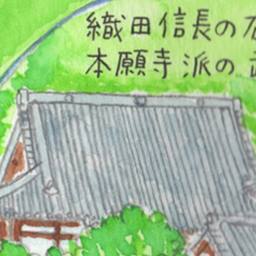 織田信長の
本願寺派の